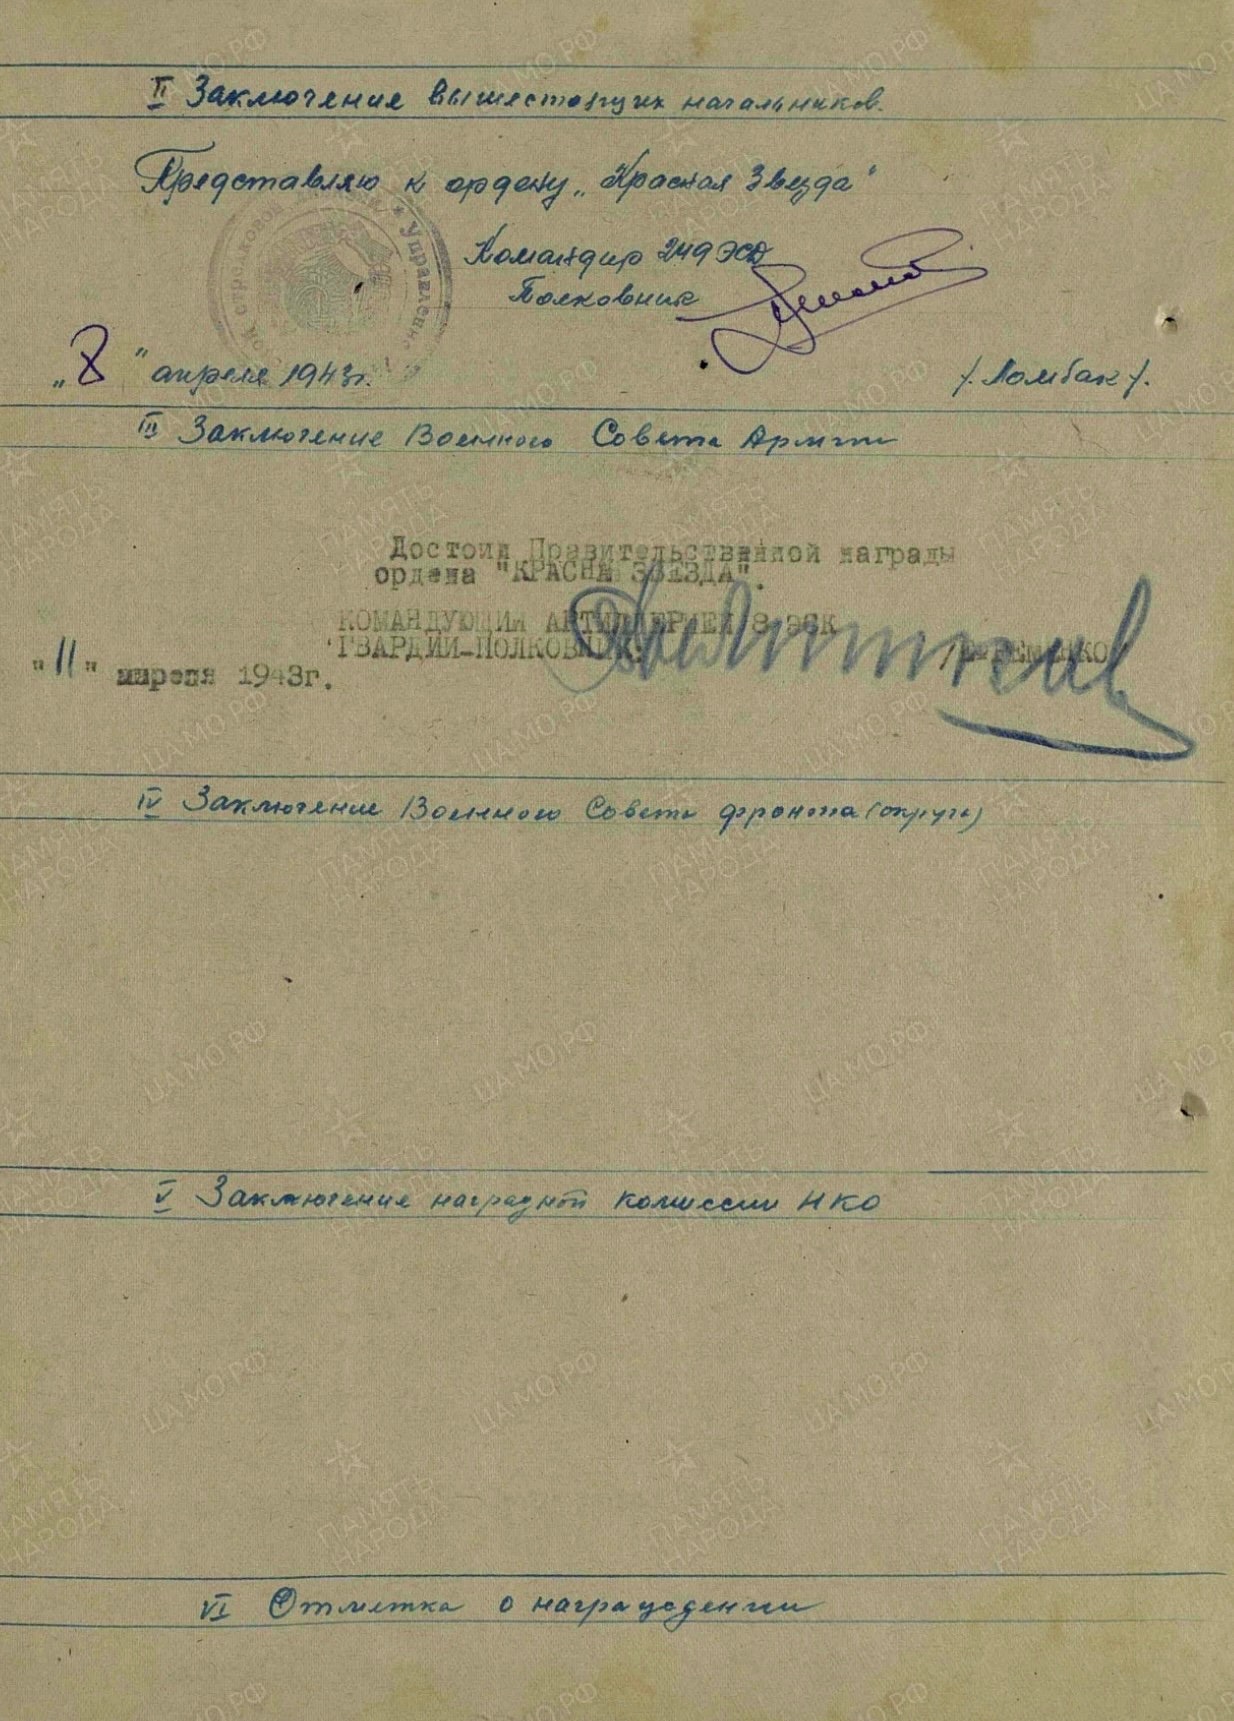 II Заключение вышестоящих начальников.
Представляю к ордену „Красная Звезда“
Командир 249 ЭСД
Полковник
„8“ апреля 1943г.
/. Ломбак /.
III Заключение Военного Совета Армии
Достоин Правительственной награды
ордена "КРАСНАЯ ЗВЕЗДА".
КОМАНДУЮЩИЙ АРТИЛЛЕРИЕЙ 8 ЭСК
ГВАРДИИ-ПОЛКОВНИК:
"11" апреля 1943г.
IV Заключение Военного Совета фронта (округа)
V Заключение наградной комиссии НКО
VI Отметка о награждении
ПАМЯТЬ НАРОДА
ЦАМО.РФ